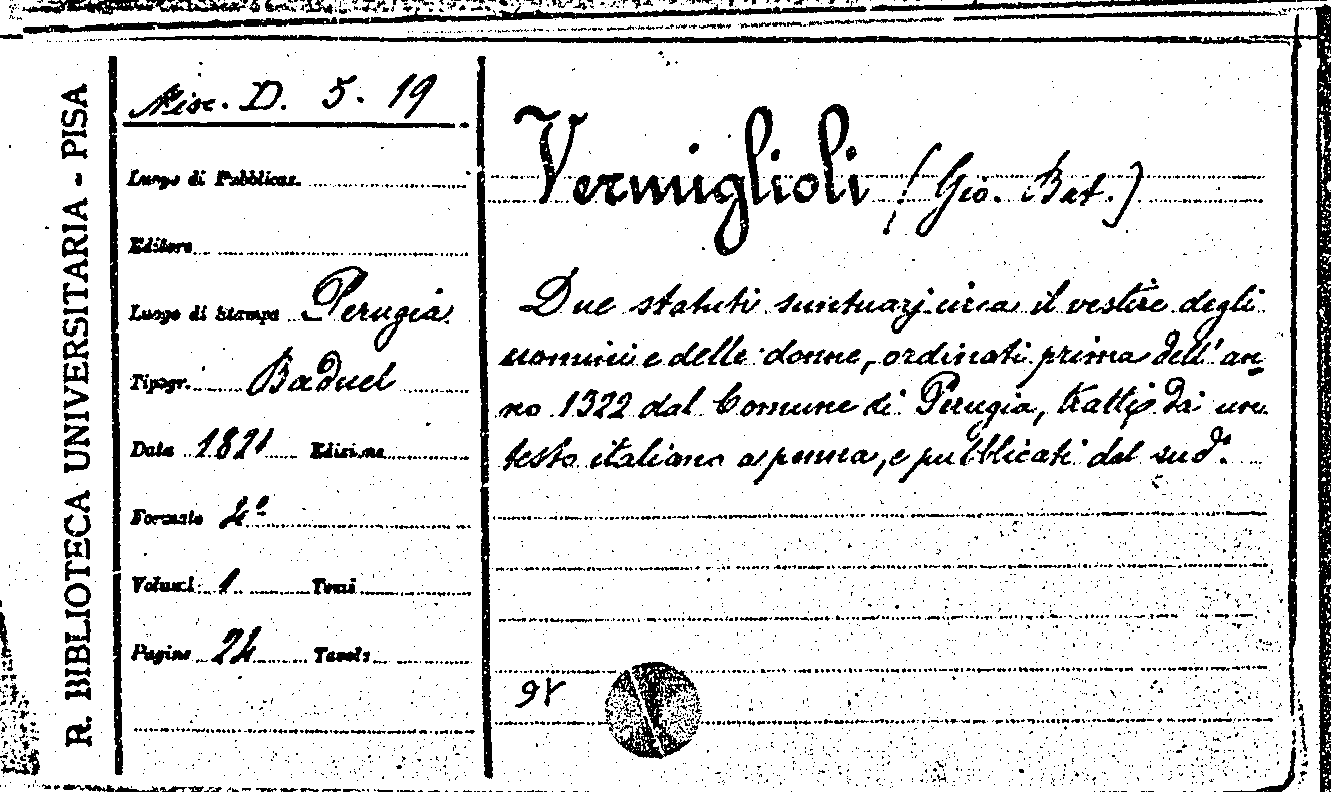 R. BIBLIOTECA UNIVERSITARIA - PISA
Misc. D. 5. 19
Luogo di Pubblicaz.
Editore
Luogo di Stampa Perugia
Tipogr. Baduel
Data 1821 Edizione
Formato 4º
Volumi 1 Tomi
Pagine 24 Tavole
Vermiglioli (Gio. Bat.)
Due statuti suntuarj circa il vestire degli
uomini e delle donne, ordinati prima dell'an
no 1322 dal Comune di Perugia, tratti da un
testo italiano a penna, e pubblicati dal sud.º